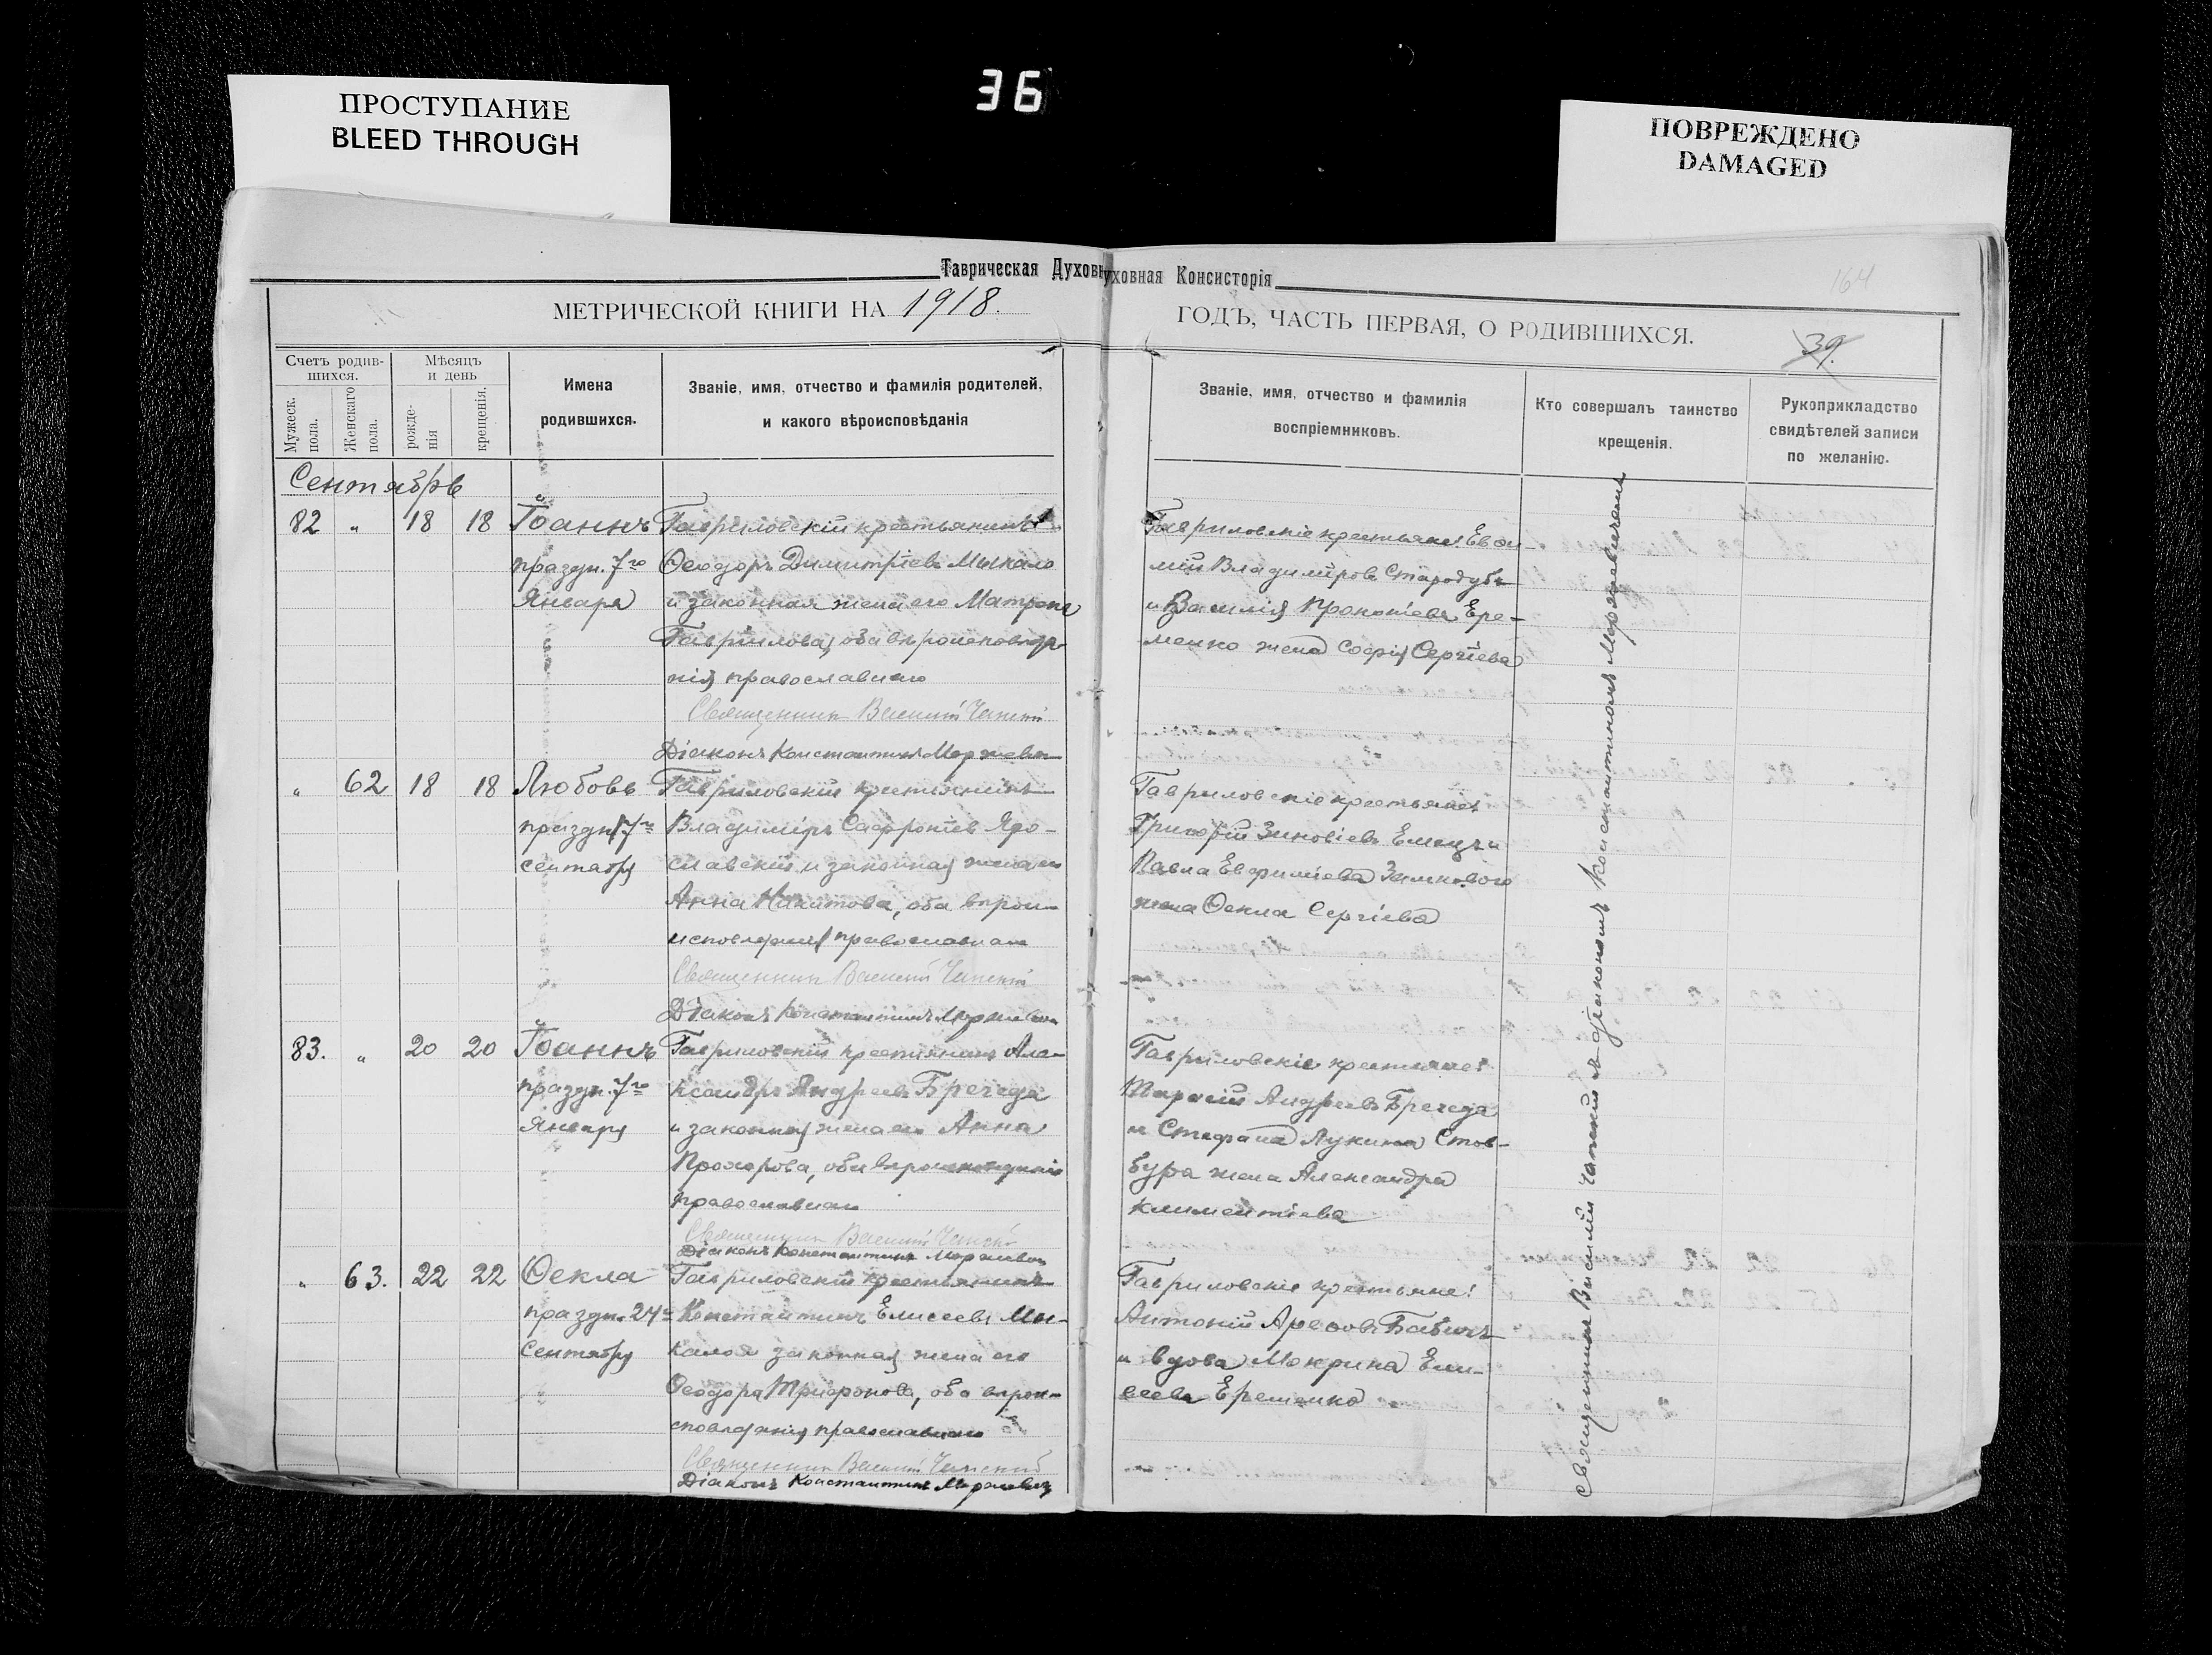 36
ПРОСТУПАНИЕ
BLEED THROUGH
ПОВРЕЖДЕНО
DAMAGED
Таврическая Духовн
уховная Консисторія
164
МЕТРИЧЕСКОЙ КНИГИ НА 1918.
ГОДЪ, ЧАСТЬ ПЕРВАЯ, О РОДИВШИХСЯ.
39.
Счетъ родив-
шихся.
Мужеск.
пола.
Женскаго
пола.
Мѣсяцъ
и день
рожде-
нія
крещенія.
Имена
родившихся.
Званіе, имя, отчество и фамилія родителей,
и какого вѣроисповѣданія
Званіе, имя, отчество и фамилія
воспріемниковъ.
Кто совершалъ таинство
крещенія.
Рукоприкладство
свидѣтелей записи
по желанію.
Сентябрь
82 „ 18 18 Іоаннъ
праздн. 7го
Января
Гавриловскій крестьянинъ
Ѳеодоръ Димитріевъ Мыкало
и законная жена его Матрона
Гаврилова, оба вѣроисповѣда
нія православнаго
Священникъ Василій Чапскій
Діаконъ Константинъ Моржевич
Гавриловскіе крестьяне: Евѳи-
мій Владиміровъ Стародубъ
и Василія Прокопіева Ере-
менко жена Софія Сергіева
„ 62 18 18 Любовь
праздн. 17го
сентября
Гавриловскій крестьянинъ
Владиміръ Сафроніевъ Яро-
славскій и законная жена его
Анна Никитова, оба вѣрои-
исповѣданія православнаго
Священникъ Василій Чапскій
Діаконъ Константинъ Моржевич
Гавриловскіе крестьяне:
Григорій Зиновіевъ Емецъ и
Павла Евфиміева Зимкового
жена Ѳекла Сергіева
83. „ 20 20 Іоаннъ
праздн. 7го
Января
Гавриловскій крестьянинъ Але-
ксандръ Андреевъ Бречеда
и законная жена его Анна
Прохорова, оба вѣроисповѣданія
православнаго
Священникъ Василій Чапскій
Діаконъ Константинъ Моржевич
Гавриловскіе крестьяне:
Тарасій Андреевъ Бречеда
и Стефана Лукина Стов-
бура жена Александра
Климентіева
„ 63. 22 22 Ѳекла
праздн. 24го
Сентября
Гавриловскій крестьянинъ
Константинъ Елисеевъ Мы-
кало и законная жена его
Ѳеодора Трифонова, оба вѣрои-
сповѣданія православнаго
Священникъ Василій Чапскій
Діаконъ Константинъ Моржевич
Гавриловскіе крестьяне:
Антоній Арефовъ Бабичъ
и вдова Мокрина Ели-
сеева Еременко
Священникъ Василій Чапскій съ діакономъ Константиномъ Моржевичемъ